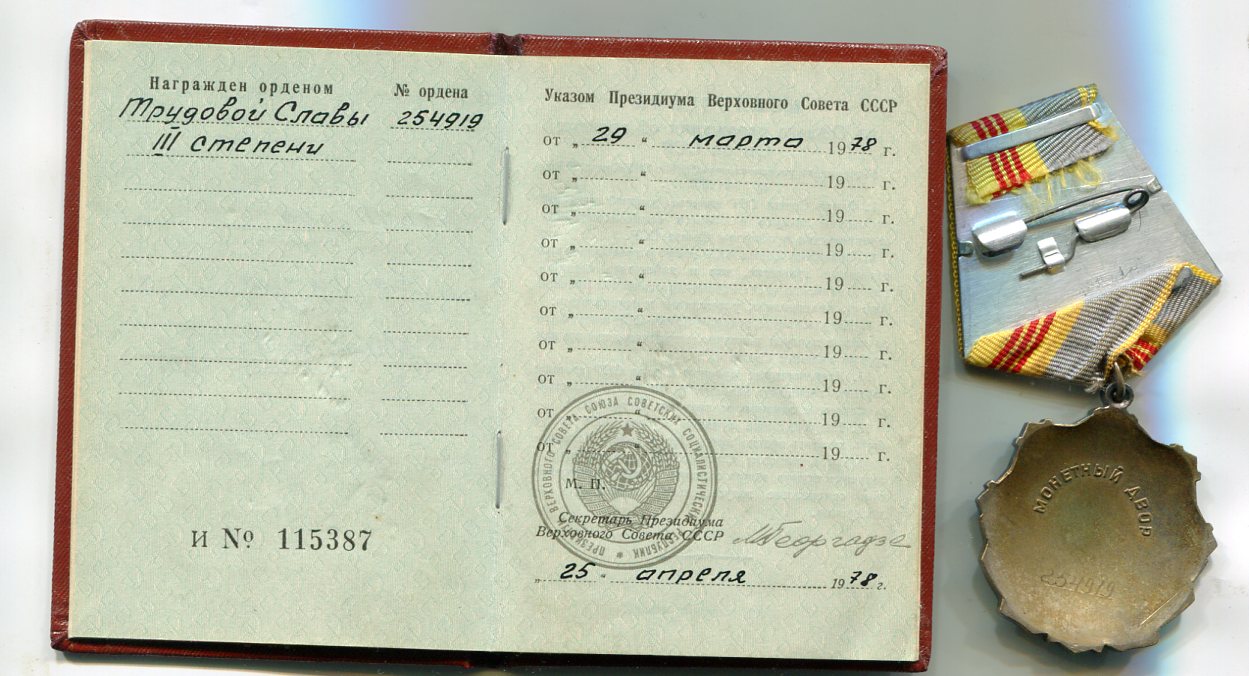 Награжден орденом
№ ордена
Трудовой Славы
254919
III степени
и № 115387
Указом Президиума Верховного Совета СССР
от „ 29 “ марта 1978 г.
от „ “ 19 г.
от „ “ 19 г.
от „ “ 19 г.
от „ “ 19 г.
от „ “ 19 г.
от „ “ 19 г.
от „ “ 19 г.
от „ “ 19 г.
от „ “ 19 г.
ПРЕЗИДИУМ ВЕРХОВНОГО СОВЕТА СОЮЗА СОВЕТСКИХ СОЦИАЛИСТИЧЕСКИХ РЕСПУБЛИК
М. П.
Секретарь Президиума
Верховного Совета СССР
МГеоргадзе
„ 25 “ апреля 1978 г.
МОНЕТНЫЙ ДВОР
254919